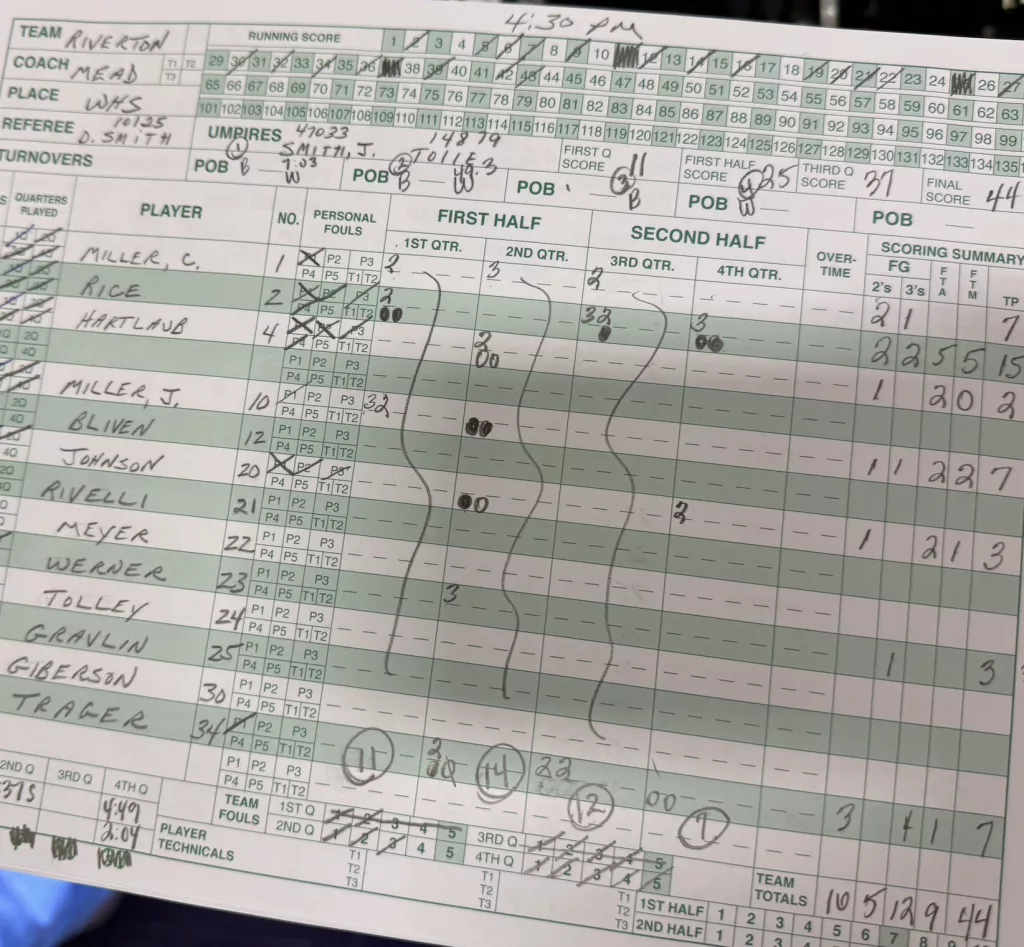 4:30 PM
TEAM RIVERTON
RUNNING SCORE 1 2 3 4 5 6 7 8 9 10 12 13 14 15 16 17 18 19 20 21 22 23 24 26 27
COACH MEAD T1 T2 T3
29 30 31 32 33 34 35 36 38 39 40 41 42 43 44 45 46 47 48 49 50 51 52 53 54 55 56 57 58 59 60 61 62 63
65 66 67 68 69 70 71 72 73 74 75 76 77 78 79 80 81 82 83 84 85 86 87 88 89 90 91 92 93 94 95 96 97 98 99
PLACE WHS
101 102 103 104 105 106 107 108 109 110 111 112 113 114 115 116 117 118 119 120 121 122 123 124 125 126 127 128 129 130 131 132 133 134 135
REFEREE 10125 D. SMITH
UMPIRES 47033 SMITH, J. 14879 TOLLE
FIRST Q SCORE 11
FIRST HALF SCORE 25
THIRD Q SCORE 37
FINAL SCORE 44
TURNOVERS
POB 1 B 7:03 W
POB 2 B W
POB 3 B
POB 4 W
POB
QUARTERS PLAYED PLAYER NO. PERSONAL FOULS FIRST HALF SECOND HALF OVER-TIME SCORING SUMMARY
1ST QTR. 2ND QTR. 3RD QTR. 4TH QTR. FG 2's 3's FTA FTM TP
MILLER, C. 1 P2 P3 P4 P5 T1 T2 2 3 2 2 1 7
RICE 2 P5 T1 T2 2 00 32 3 00 2 2 5 5 15
HARTLAUB 4 P3 P4 P5 T1 T2 2 00 1 2 0 2
P1 P2 P3 P4 P5 T1 T2
MILLER, J. 10 P1 P2 P3 P4 P5 T1 T2 32 00 1 1 2 2 7
BLIVEN 12 P1 P2 P3 P4 P5 T1 T2
JOHNSON 20 P2 P3 P4 P5 T1 T2 00 2 1 2 1 3
RIVELLI 21 P1 P2 P3 P4 P5 T1 T2
MEYER 22 P1 P2 P3 P4 P5 T1 T2 3 1 3
WERNER 23 P1 P2 P3 P4 P5 T1 T2
TOLLEY 24 P1 P2 P3 P4 P5 T1 T2
GRAVLIN 25 P1 P2 P3 P4 P5 T1 T2
GIBERSON 30 P1 P2 P3 P4 P5 T1 T2
TRAGER 34 P1 P2 P3 P4 P5 T1 T2 2 00 22 00 3 1 7
P1 P2 P3 P4 P5 T1 T2 11 14 12 7
2ND Q 3RD Q 4TH Q
4:49
2:04
TEAM FOULS 1ST Q 1 2 3 4 5 3RD Q 1 2 3 4 5
2ND Q 1 2 3 4 5 4TH Q 1 2 3 4 5
PLAYER TECHNICALS T1 T2 T3 T1 T2 T3 T1 T2 T3
TEAM TOTALS 10 5 12 9 44
1ST HALF 1 2 3 4 5 6 7 8
2ND HALF 1 2 3 4 5